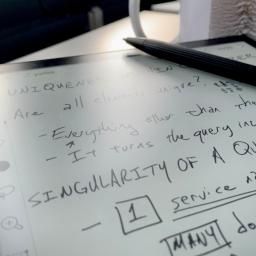 UNIQUENE
Are all unique?
- Everything other than th
- It turns the query in
SINGULARITY OF A QU
- 1 service
MANY do